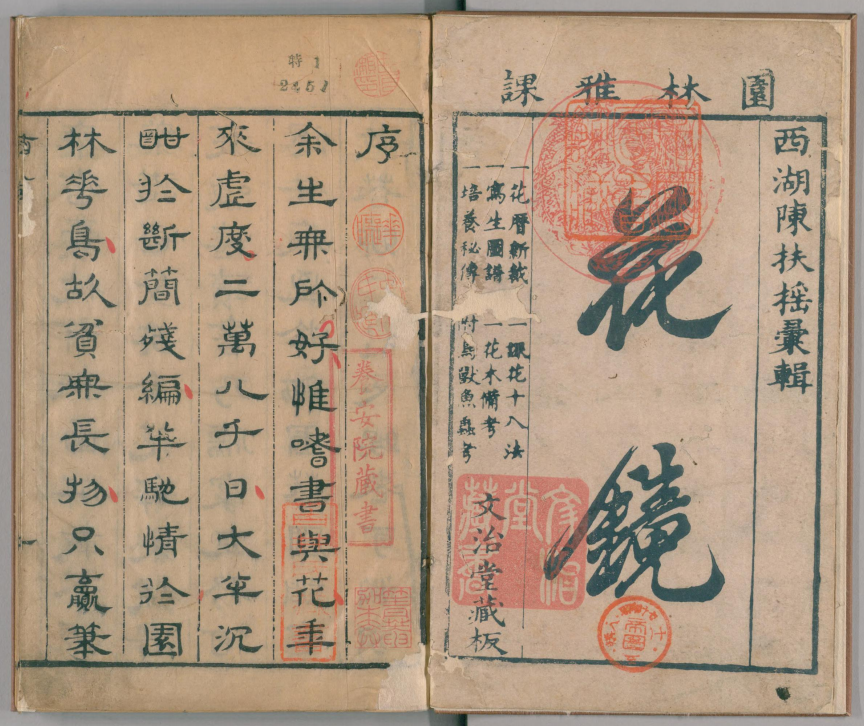 園林雅課
西湖陳扶搖彙輯
花鏡
一花曆新裁　一課花十八法
一寫生圖譜　一花木備考
一培養秘傳　附鳥獸魚蟲考
文治堂藏板
特1
2451
序
養安院藏書
余生無所好惟嗜書與花年
來虛度二萬八千日大半沉
酣於斷簡殘編半馳情於園
林花鳥故貧無長物只贏筆